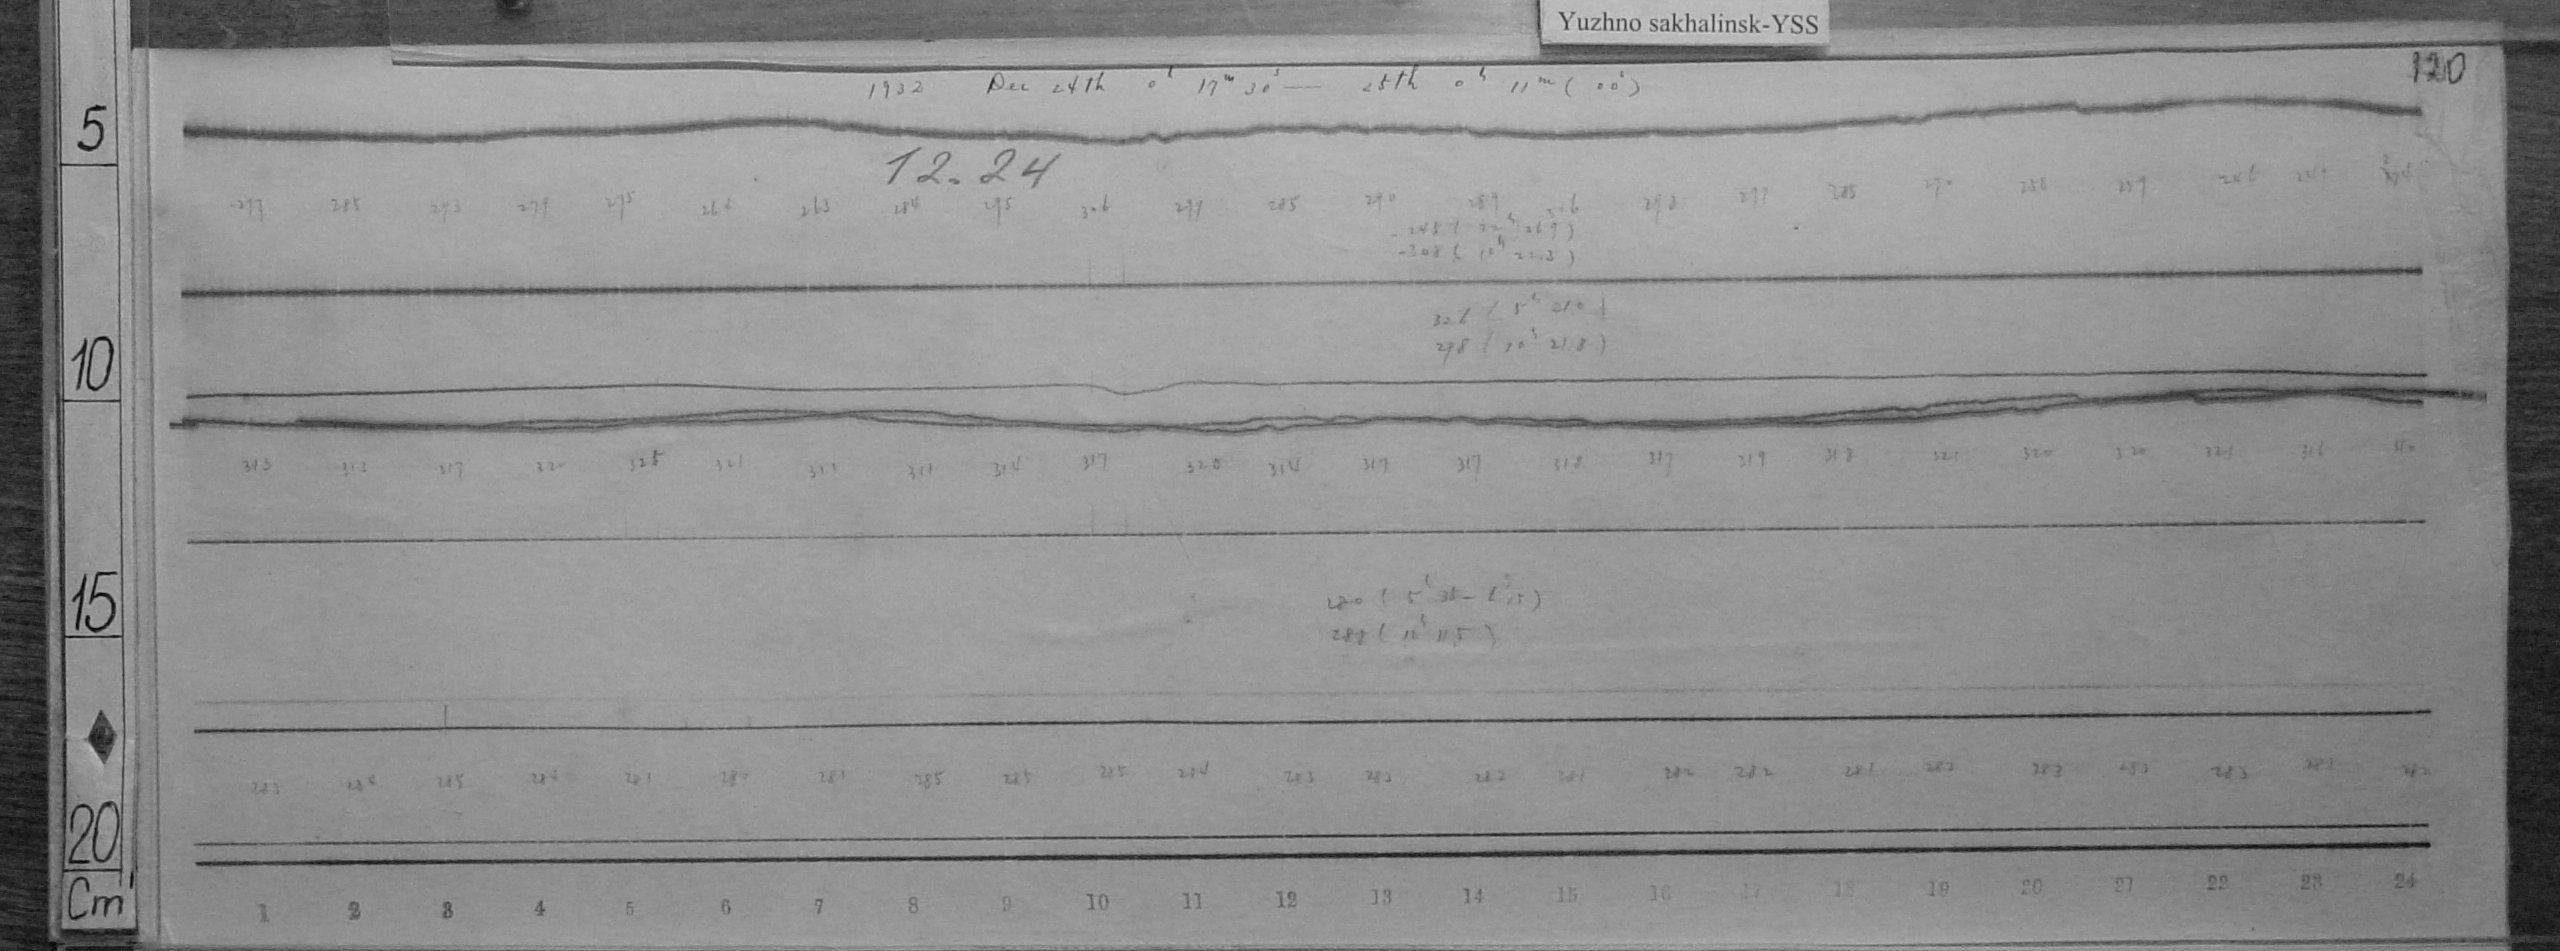 Yuzhno sakhalinsk-YSS
120
1932 Dec 24th 0h 17m 30s — 25th 0h 11m (00s)
5
12.24
277 285 293 279 295 263 284 295 306 299 285 290 289 306 298 297 285 290 286 289 246 249
-245 ( 22h 26.9 )
-308 ( 10h 22.3 )
326 ( 5h 21.0 )
298 ( 10h 21.8 )
10
313 313 317 320 325 321 311 311 314 317 320 314 317 317 318 317 319 318 321 320 320 323 316 310
15
280 ( 5h
288 ( 10h 11.5 )
283 284 285 284 281 280 281 285 285 285 284 283 283 282 281 282 282 281 282 283 283 283 281 282
20
Cm
1 2 3 4 5 6 7 8 9 10 11 12 13 14 15 16 17 18 19 20 21 22 23 24